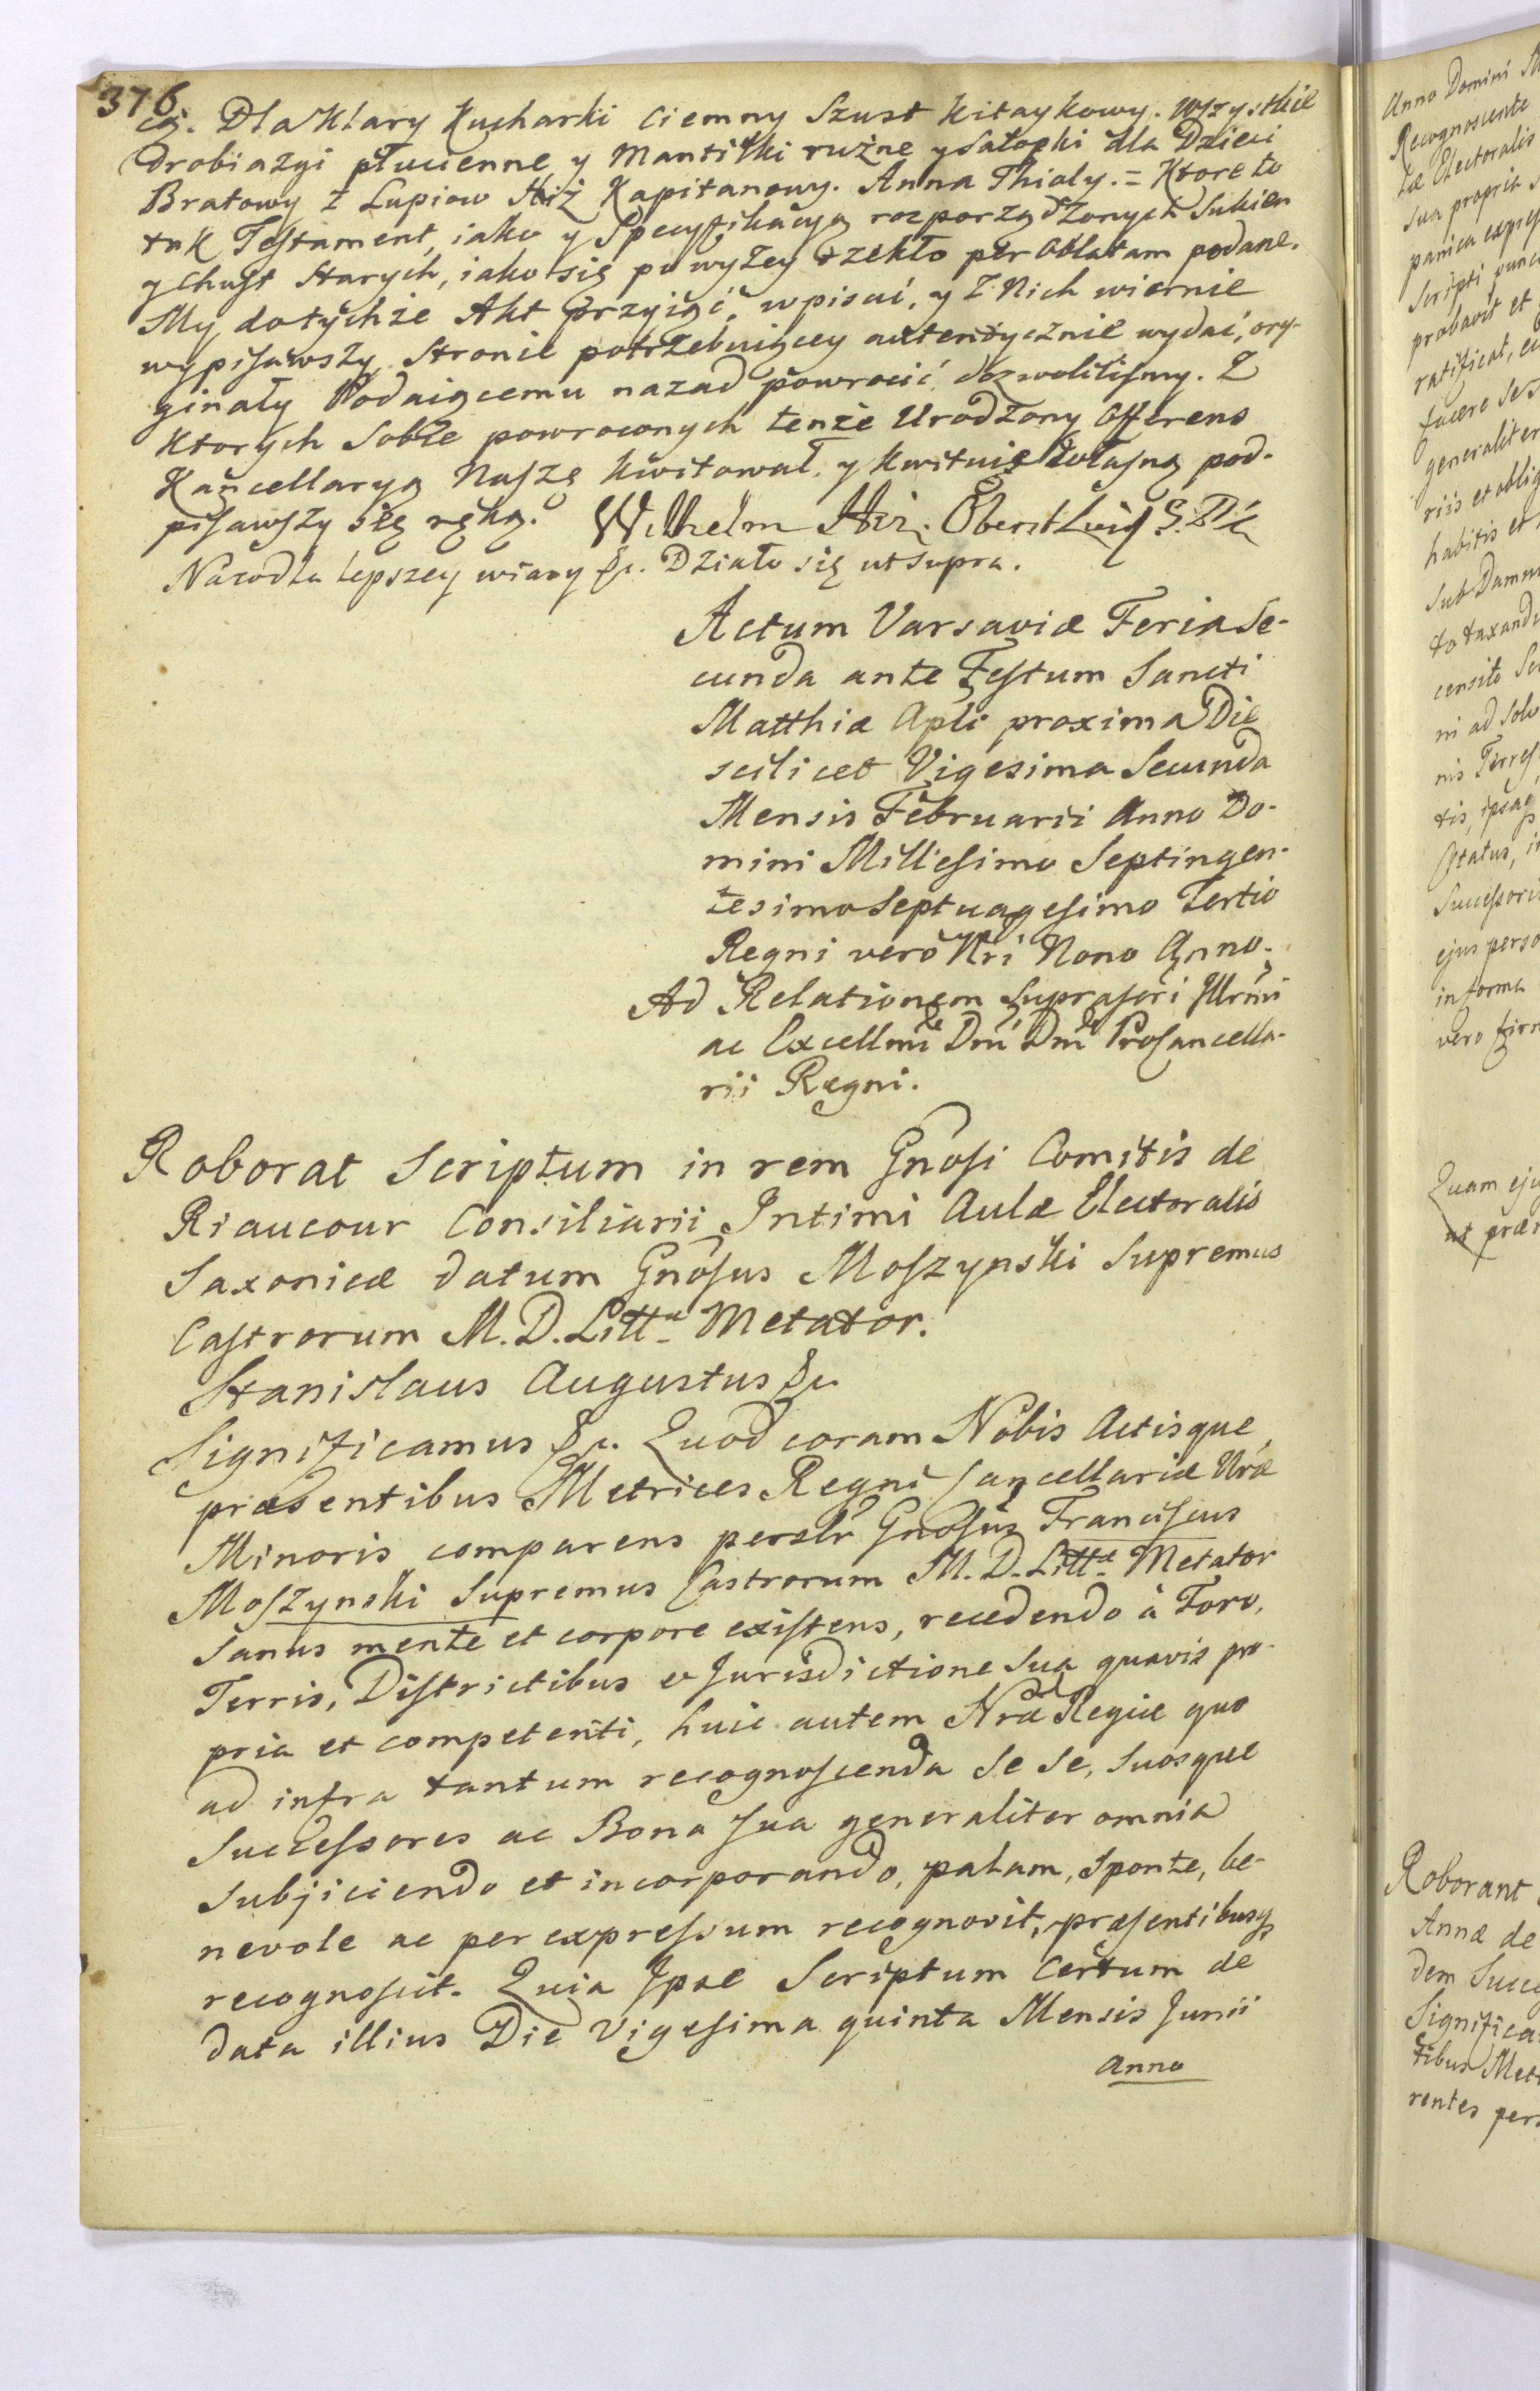 376.
cą. Dla Klary Kucharki Ciemny Szust Kitaykowy. Wszystkie
drobiazgi płucienne y Mantilki rużne y Salopki dla Dzieci
Bratowy z Lupiow Hiż Kapitanowy. Anna Thialy. = Ktore to
tak Testament, iako y Specyfikacyą rozporządzonych Sukien
y Chust Starych, iako się powyżey rzekło per Oblatam podane.
My do tychże Akt przyiąć, wpisać, y z Nich wiernie
wypisawszy Stronie potrzebuiącey autentycznie wydać, ory-
ginały Podaiącemu nazad powrocić dozwolilismy. Z
Ktorych Sobie powroconych tenże Urodzony Offerens
Kancellaryą Naszę kwitował, y kwituie własną pod-
pisawszy się ręką. Wilhelm Hiz.
Na co dla lepszey wiary &c. Działo się ut supra.
Actum Varsaviæ Feria Se-
cunda ante Festum Sancti
Matthiæ Apli proxima Die
scilicet Vigesima Secunda
Mensis Februarii Anno Do-
mini Millesimo Septingen-
tesimo Septuagesimo Tertio
Regni vero Nri Nono Anno.
Ad Relationem Suprascri Illrmi
ac Excellmi Dni Dni Procancella-
rii Regni.
Roborat Scriptum in rem Gnosi Comitis de
Riaucour Consiliarii Intimi Aulæ Electoralis
Saxonicæ datum Gnosus Moszynski Supremus
Castrorum M. D. Littæ Metator.
Stanislaus Augustus &c.
Significamus &c. Quod coram Nobis Actisque
præsentibus Metrices Regni Cancellariæ Nræ
Minoris comparens persolr Gnosus Franciscus
Moszynski Supremus Castrorum M. D. Littæ Metator
Sanus mente et corpore existens, recedendo à Foro,
Terris, Districtibus & Jurisdictione Sua quavis pro-
pria et competenti, huic autem Nræ Regiæ quo
ad infra tantum recognoscenda Se Se, Suosque
Successores ac Bona sua generaliter omnia
Subjiciendo et incorporando, palam, sponte, be-
nevole ac per expressum recognovit, præsentibusq
recognoscit. Quia Ipse Scriptum Certum de
data illius Die Vigesima quinta Mensis Junii
Anno
Anno Domini
Recognoscente
tæ Electoralis
sua propria
panica
Scripti
probavit et
ratificat,
facere
generaliter
riis et oblig
habitis et
Sub Damn
to taxand
censito
ni ad Solv
nis Terres
tis, ipsaq
Status,
Successori
ejus perso
in forma
vero
Quam eju
ut præ
Roborant
Annæ de
dem Succe
Significa
tibus Met
rentes pers